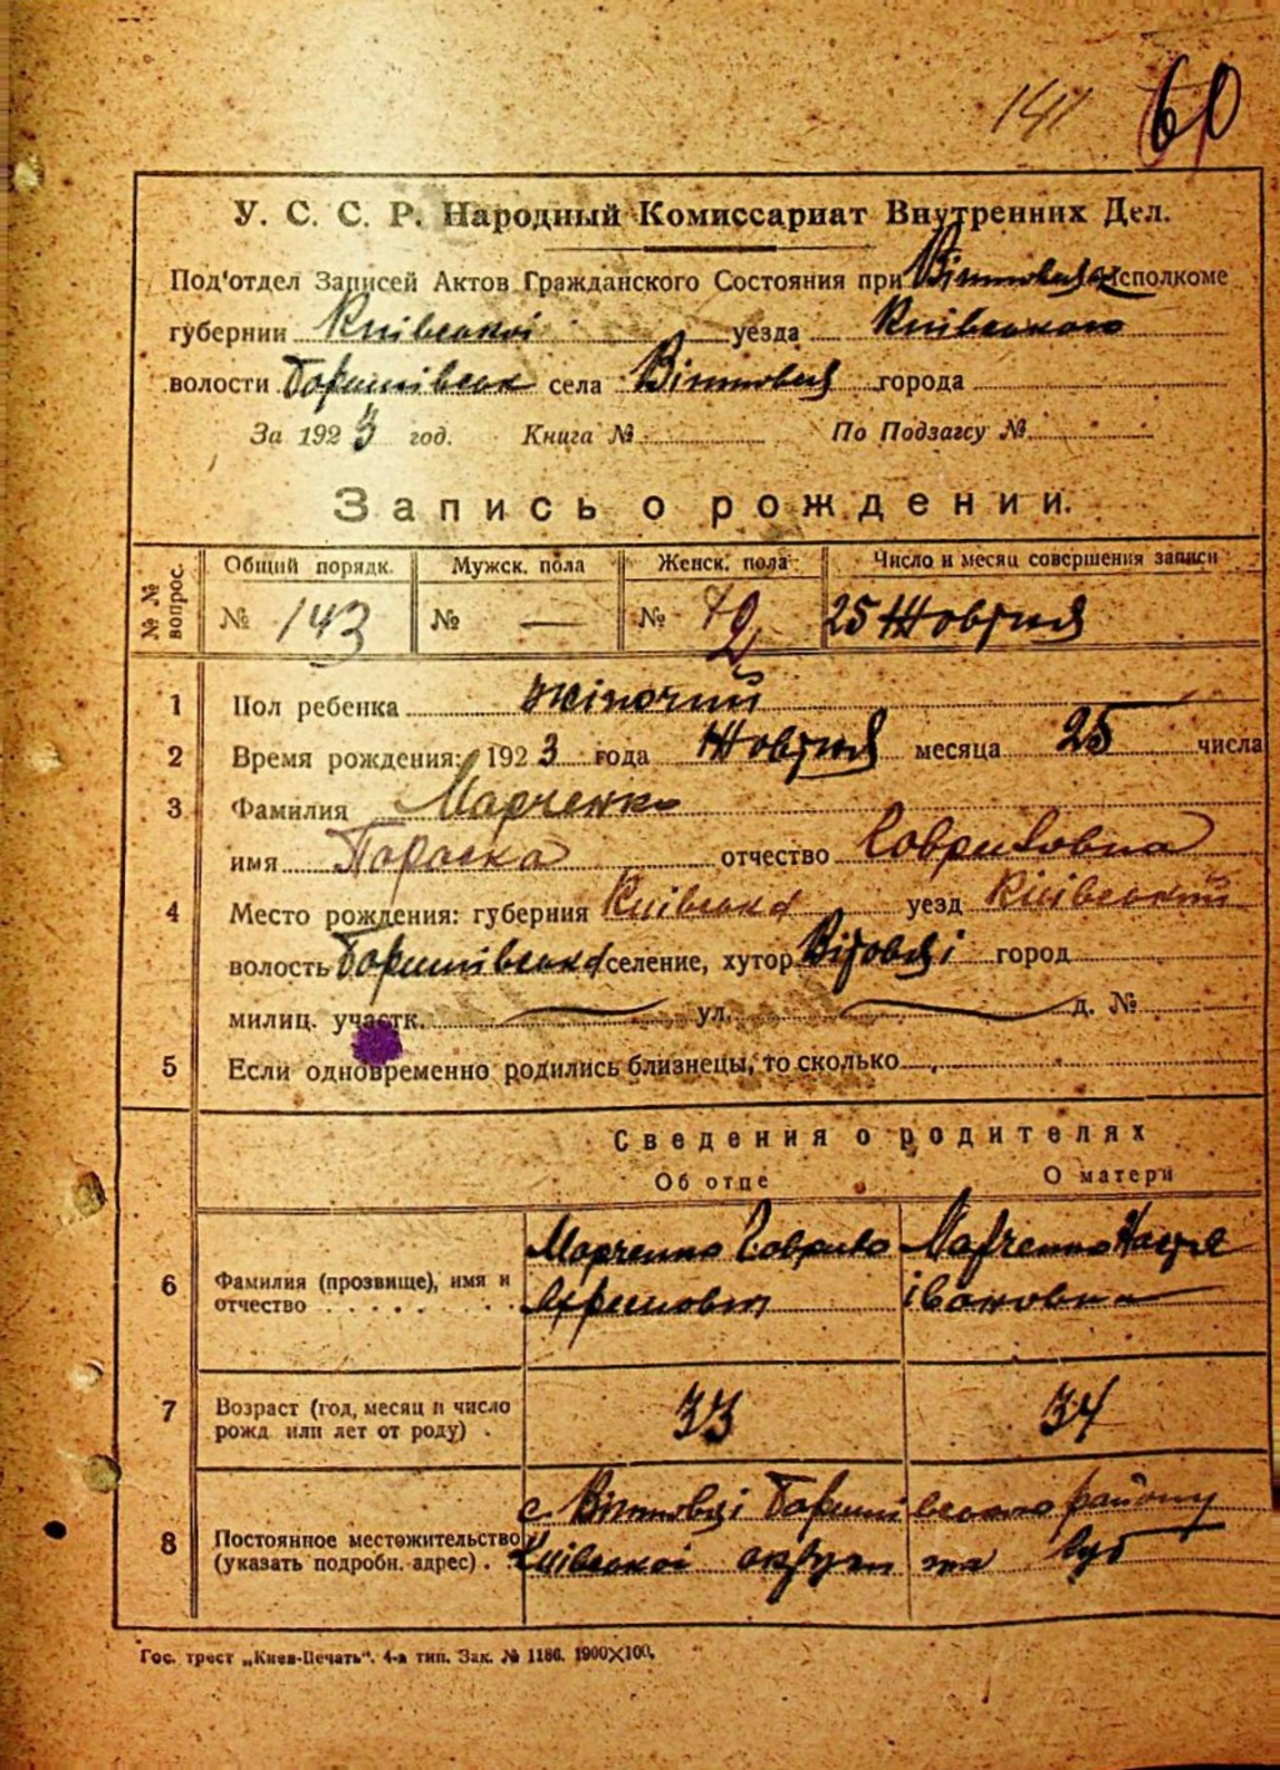 141 60
У. С. С. Р. Народный Комиссариат Внутренних Дел.
Под'отдел Записей Актов Гражданского Состояния при Исполкоме
губернии Київської уезда Київського
волости села города
За 1923 год. Книга № По Подзагсу №
Запись о рождении.
№ № вопрос. Общий порядк. Мужск. пола Женск. пола Число и месяц совершения записи
№ 143 № — № 72 25 Жовтня
1 Пол ребенка жіночий
2 Время рождения: 1923 года Жовтня месяца 25 числа
3 Фамилия Марченко
имя Параска отчество Гавриловна
4 Место рождения: губерния Київська уезд Київський
волость селение, хутор город
милиц. участк. — ул. — д. №
5 Если одновременно родились близнецы, то сколько
Сведения о родителях
Об отце О матери
Марченко Гаврило Марченко Настя
6 Фамилия (прозвище), имя и
отчество Івановна
7 Возраст (год, месяц и число 33 34
рожд или лет от роду) .
с. району
8 Постоянное местожительство
(указать подробн. адрес) . Київської округи
Гос. трест „Киев-Печать“. 4-я тип. Зак. № 1186. 1900×100.